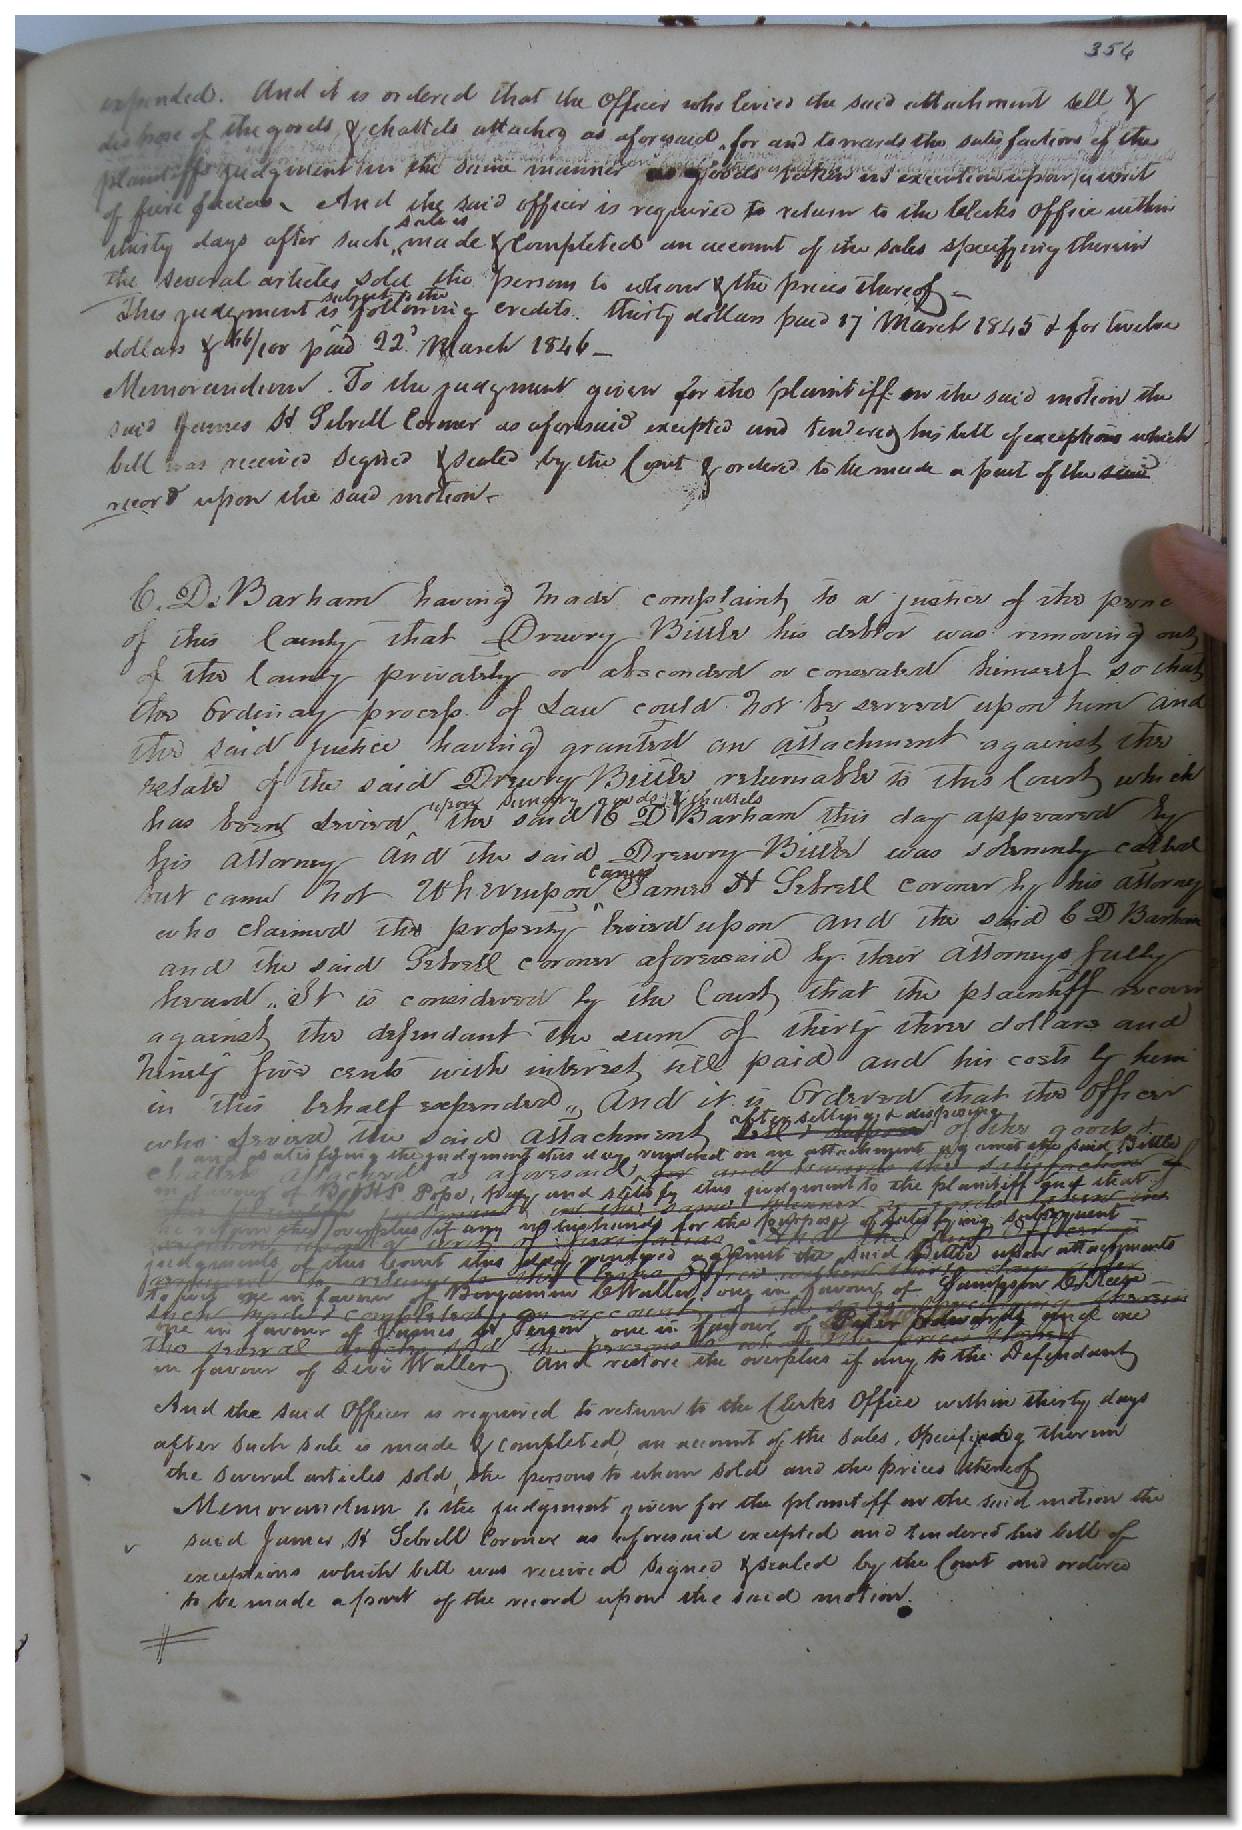 354
expended. And it is ordered that the officer who levied the said attachment sell &
dispose of the goods & chattels attached as aforesaid, for and towards the satisfaction of the
plaintiffs judgment in the same manner as goods taken in execution upon a writ
of fieri facias. And the said officer is required to return to the Clerks Office within
sale is
thirty days after such made & completed an account of the sales specifying therein
the several articles sold the persons to whom & the prices thereof
subject to the
This judgment is following credits. thirty dollars paid 17 March 1845 & for twelve
dollars & 66/100 paid 22d March 1846
Memorandum. To the judgment given for the plaintiff on the said motion the
said James H Sebrell Coroner as aforesaid excepted and tendered his bill of exceptions which
bill was received signed & sealed by the Court & ordered to be made a part of the said
record upon the said motion.
C. D. Barham having made complaint to a justice of the peace
of this County that Drewry Bittle his debtor was removing out
of the County privately or absconded or concealed himself so that
the ordinary process of Law could not be served upon him and
the said justice having granted an attachment against the
estate of the said Drewry Bittle returnable to this Court which
upon sundry goods & chattels
has been levied the said C D Barham this day appeared by
his attorney And the said Drewry Bittle was solemnly called
came
but came not Whereupon James H Sebrell coroner by his attorney
who claimed the property levied upon and the said C D Barham
and the said Sebrell coroner aforesaid by their attorneys fully
heard, It is considered by the Court that the plaintiff recover
against the defendant the sum of thirty three dollars and
ninety five cents with interest till paid and his costs by him
in this behalf expended, And it is Ordered that the officer
after selling & disposing
who levied the said attachment of the goods &
and satisfying the judgment this day rendered on an attachment against the said Bittle
chattels attached as aforesaid for and towards the satisfaction of
in favour of B H P Pope, pay and satisfy this judgment to the plaintiff and that
he retain the overplus if any in his hands for the purpose of satisfying subsequent
judgments of this Court this day rendered against the said Bittle upon attachments
to wit, one in favour of Benjamin C Waller, one in favour of Sampson C Reese
such made & completed, an account of the sales specifying therein
one in favour of James H Person, one in favour of Peter Edwards and one
the several articles sold the persons to whom the prices thereof
in favour of Levi Waller. And restore the overplus if any to the Defendant
And the said Officer is required to return to the Clerks Office within thirty days
after such sale is made & completed, an account of the sales, specifying therein
the several articles sold, the persons to whom sold and the prices thereof
Memorandum to the judgment given for the plaintiff on the said motion the
said James H Sebrell Coroner as aforesaid excepted and tendered his bill of
exceptions which bill was received signed & sealed by the Court and ordered
to be made a part of the record upon the said motion.